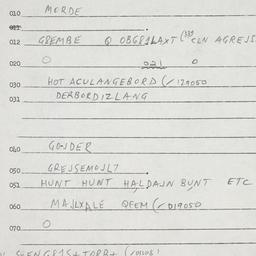 010 MORDE
011
012 G8EMBE Q OBG81LAXT (338 CLN AGREJS
020 O 021 O
030 HOT ACULANGEBORD (/129050
031 DERBORDIZLANG
040 GONDER
050 GREJSEMOJL7
051 HUNT HUNT HALDAJN BUNT ETC
060 MAJLXALE + QFEM (/019050
070 O